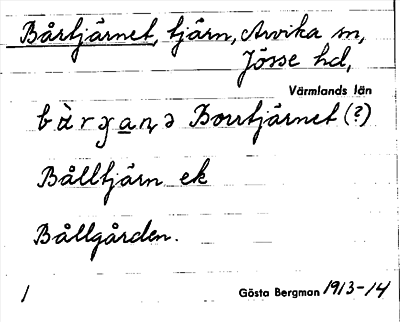 Bårtjärnet, tjärn, Arvika sn,
Jösse hd,
Värmlands län
Borrtjärnet (?)
Bålltjärn ek
Bållgården.
1 Gösta Bergman 1913-14